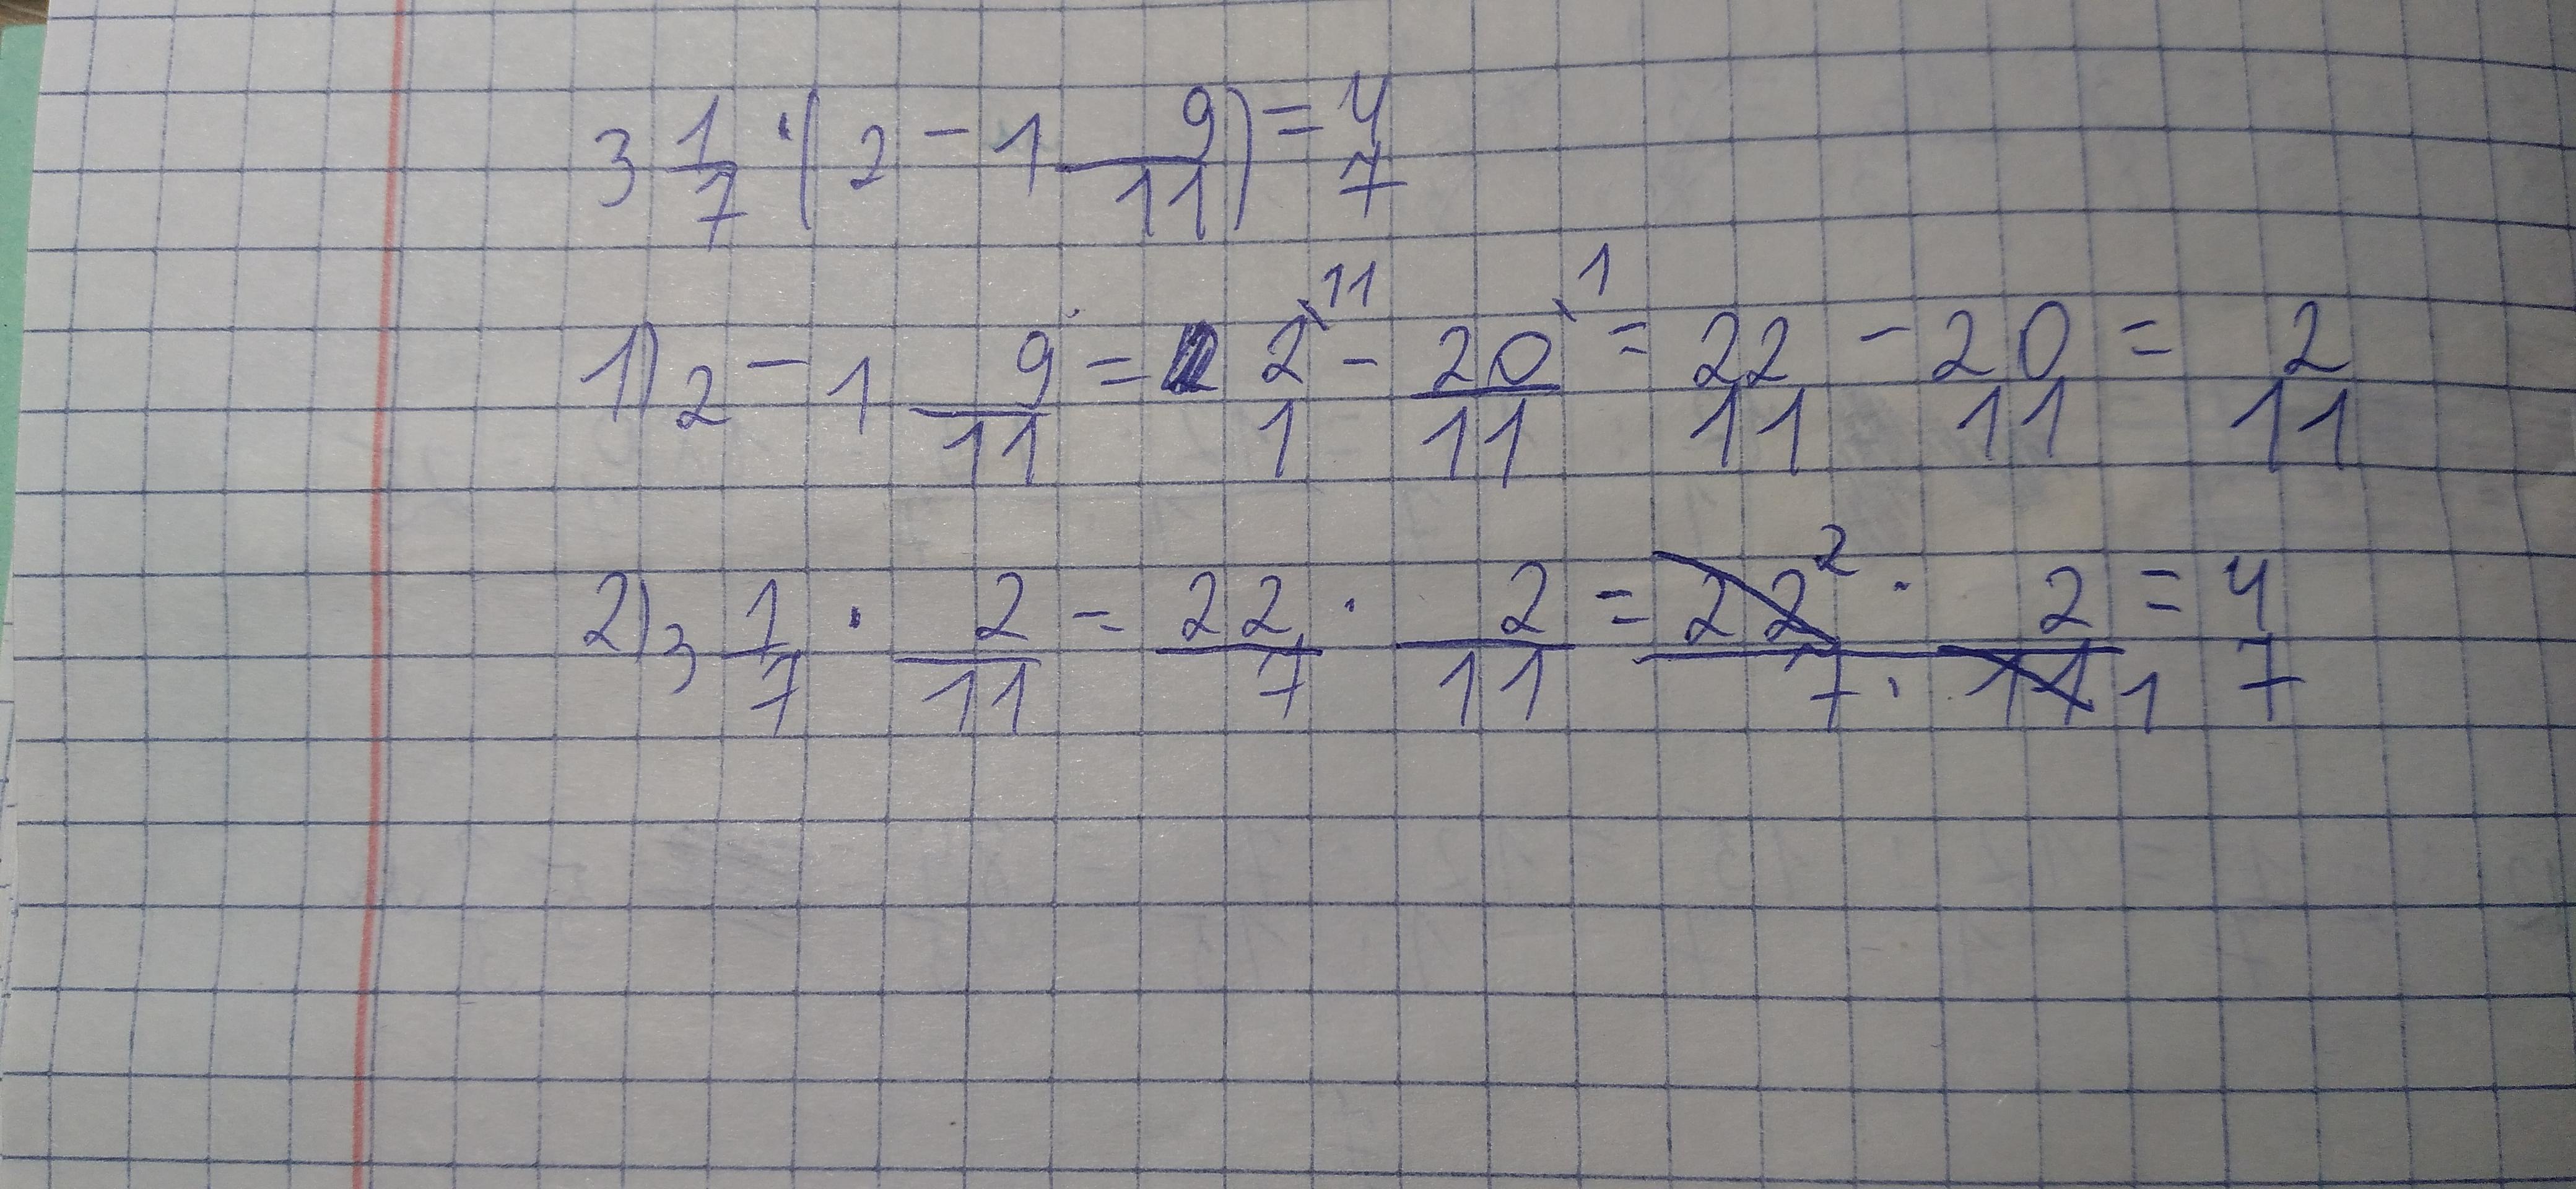 3 1/7 · (2 - 1 9/11) = 4/7
1) 2 - 1 9/11 = 2/1 \11 - 20/11 \1 = 22/11 - 20/11 = 2/11
2) 3 1/7 · 2/11 = 22/7 · 2/11 = 22 2 · 2 / 7 · 11 1 = 4/7